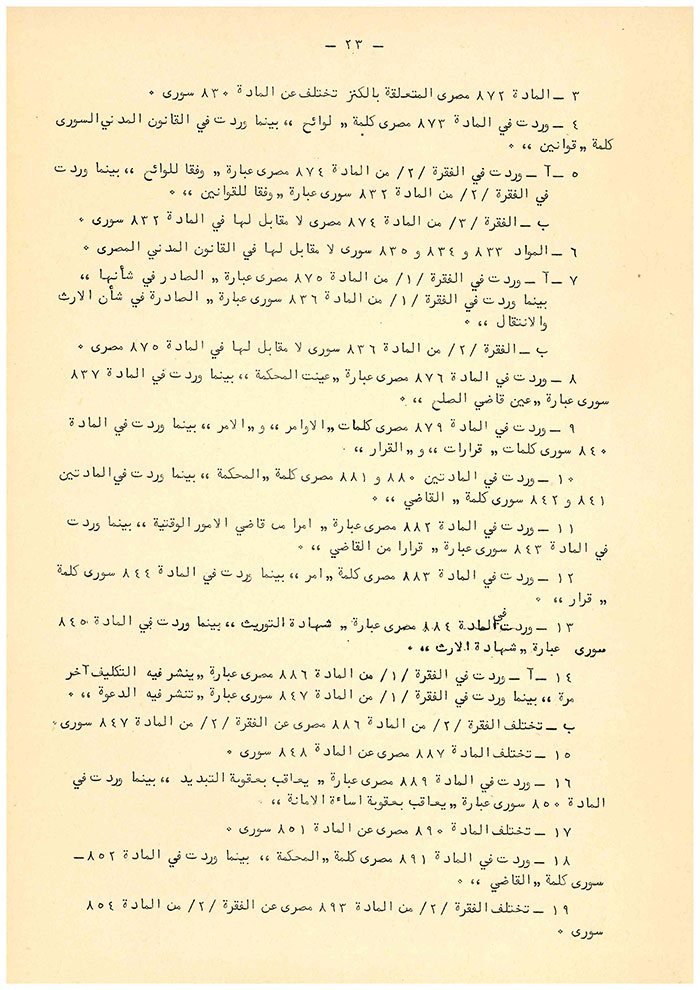 — ٢٣ —
٣ — المادة ٨٧٢ مصرى المتعلقة بالكنز تختلف عن المادة ٨٣٠ سورى ٠
٤ — وردت في المادة ٨٧٣ مصرى كلمة „ لوائح ،، بينما وردت في القانون المدني السورى
كلمة „ قوانين ،، ٠
٥ — آ — وردت في الفقرة /٢/ من المادة ٨٧٤ مصرى عبارة „ وفقا للوائح ،، بينما وردت
في الفقرة /٢/ من المادة ٨٣٢ سورى عبارة „ وفقا للقوانين ،، ٠
ب — الفقرة /٣/ من المادة ٨٧٤ مصرى لا مقابل لها في المادة ٨٣٢ سورى ٠
٦ — المواد ٨٣٣ و ٨٣٤ و ٨٣٥ سورى لا مقابل لها في القانون المدني المصرى ٠
٧ — آ — وردت في الفقرة /١/ من المادة ٨٧٥ مصرى عبارة „ الصادر في شأنها ،،
بينما وردت في الفقرة /١/ من المادة ٨٣٦ سورى عبارة „ الصادرة في شأن الارث
والانتقال ،، ٠
ب — الفقرة /٢/ من المادة ٨٣٦ سورى لا مقابل لها في المادة ٨٧٥ مصرى ٠
٨ — وردت في المادة ٨٧٦ مصرى عبارة „ عينت المحكمة ،، بينما وردت في المادة ٨٣٧
سورى عبارة „ عين قاضي الصلح ،، ٠
٩ — وردت في المادة ٨٧٩ مصرى كلمات „ الاوامر ،، و „ الامر ،، بينما وردت في المادة
٨٤٠ سورى كلمات „ قرارات ،، و „ القرار ،، ٠
١٠ — وردت في المادتين ٨٨٠ و ٨٨١ مصرى كلمة „ المحكمة ،، بينما وردت في المادتين
٨٤١ و ٨٤٢ سورى كلمة „ القاضي ،، ٠
١١ — وردت في المادة ٨٨٢ مصرى عبارة „ امرا من قاضي الامور الوقتية ،، بينما وردت
في المادة ٨٤٣ سورى عبارة „ قرارا من القاضي ،، ٠
١٢ — وردت في المادة ٨٨٣ مصرى كلمة „ امر ،، بينما وردت في المادة ٨٤٤ سورى كلمة
„ قرار ،، ٠
١٣ — وردت في المادة ٨٨٤ مصرى عبارة „ شهادة التوريث ،، بينما وردت في المادة ٨٤٥
سورى عبارة „ شهادة الارث ،، ٠
١٤ — آ — وردت في الفقرة /١/ من المادة ٨٨٦ مصرى عبارة „ ينشر فيه التكليف آخر
مرة ،، بينما وردت في الفقرة /١/ من المادة ٨٤٧ سورى عبارة „ تنشر فيه الدعوة ،، ٠
ب — تختلف الفقرة /٢/ من المادة ٨٨٦ مصرى عن الفقرة /٢/ من المادة ٨٤٧ سورى ٠
١٥ — تختلف المادة ٨٨٧ مصرى عن المادة ٨٤٨ سورى ٠
١٦ — وردت في المادة ٨٨٩ مصرى عبارة „ يعاقب بعقوبة التبديد ،، بينما وردت في
المادة ٨٥٠ سورى عبارة „ يعاقب بعقوبة اساءة الامانة ،،
١٧ — تختلف المادة ٨٩٠ مصرى عن المادة ٨٥١ سورى ٠
١٨ — وردت في المادة ٨٩١ مصرى كلمة „ المحكمة ،، بينما وردت في المادة ٨٥٢ —
سورى كلمة „ القاضي ،، ٠
١٩ — تختلف الفقرة /٢/ من المادة ٨٩٣ مصرى عن الفقرة /٢/ من المادة ٨٥٤
سورى ٠